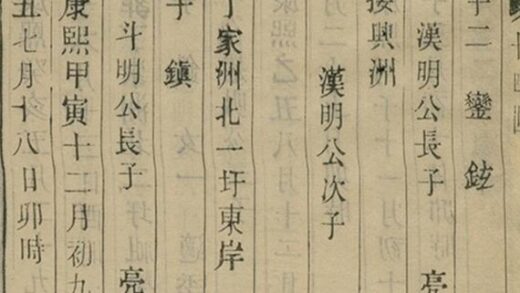 十二 鑾 鉉
漢明公長子 亮
接興洲
漢明公次子
丁家洲北一圩東岸
子 鎮
斗明公長子 亮
康熙甲寅十二月初九
丑七月十八日卯時